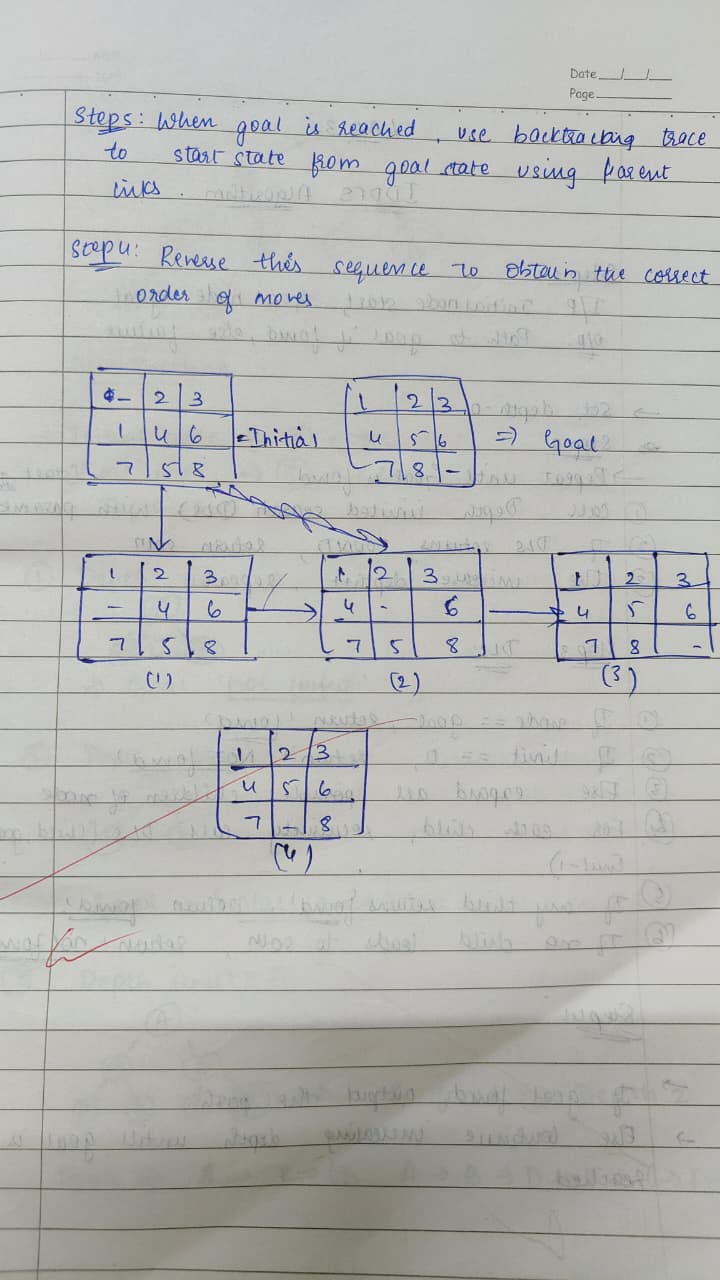 Date__/__/__
Page
Steps: When goal is reached, use backtracking trace
to start state from goal state using parent
links.
Step 4: Reverse this sequence to obtain the correct
order of moves
- 2 3
1 4 6
7 5 8
= Initial
1 2 3
4 5 6
7 8 -
=> Goal
1 2 3
- 4 6
7 5 8
(1)
1 2 3
4 - 6
7 5 8
(2)
1 2 3
4 5 6
7 8 -
(3)
1 2 3
4 5 6
7 - 8
(4)